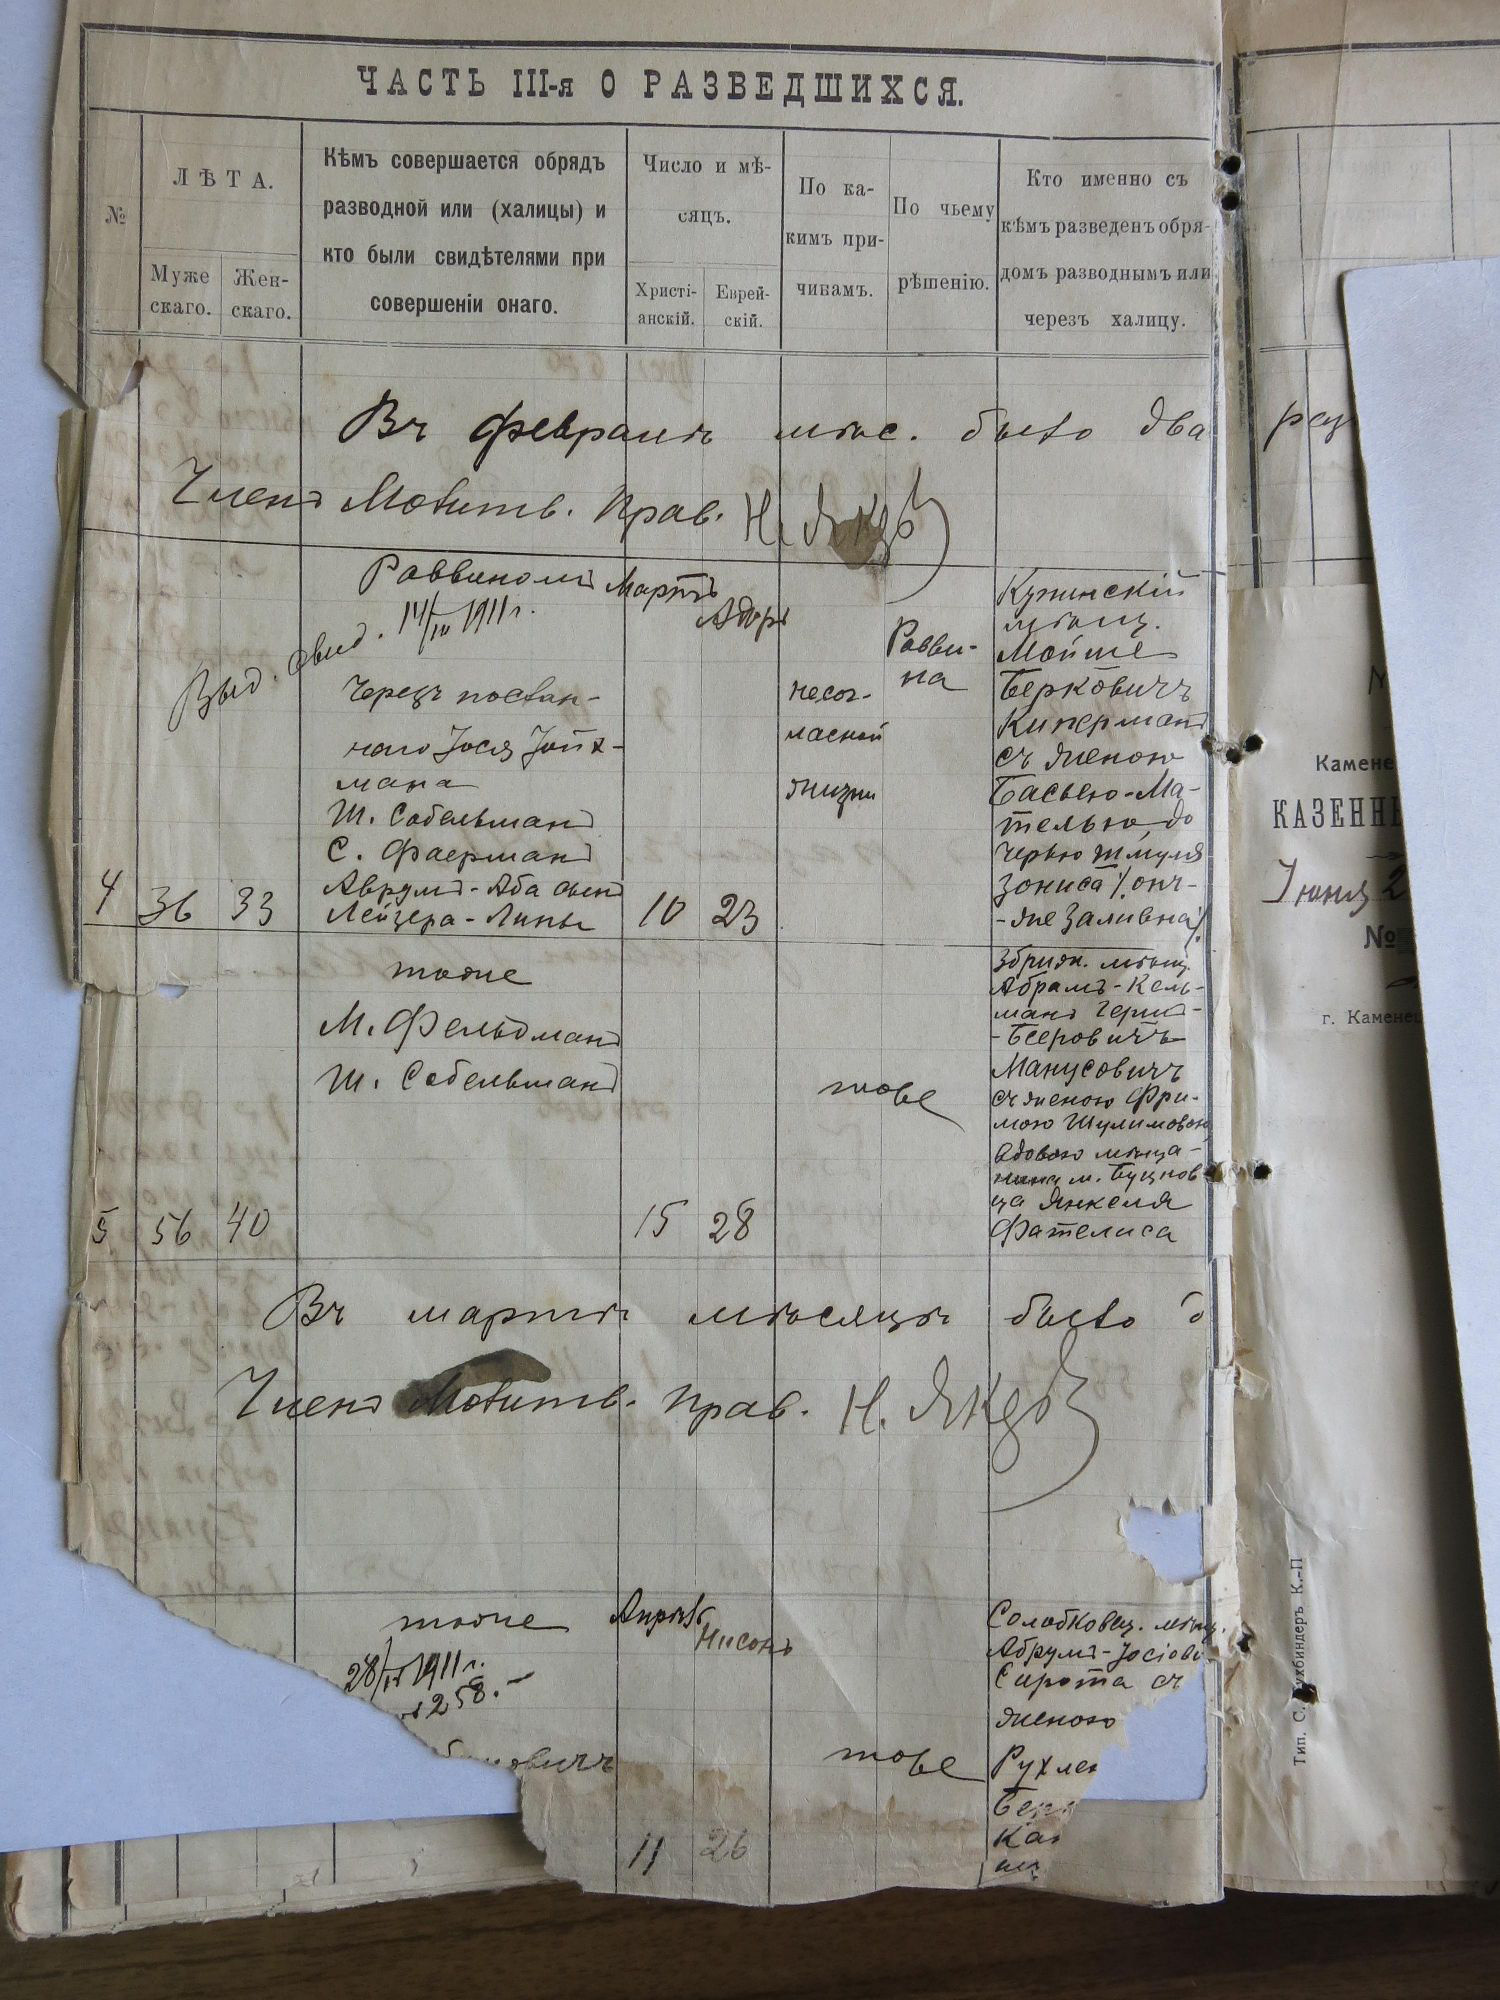 ЧАСТЬ III-я О РАЗВЕДШИХСЯ.
№
ЛѢТА.
Муже
скаго.
Жен-
скаго.
Кѣмъ совершается обрядъ
разводной или (халицы) и
кто были свидѣтелями при
совершеніи онаго.
Число и мѣ-
сяцъ.
Христі-
анскій.
Еврей-
скій.
По ка-
кимъ при-
чинамъ.
По чьему
рѣшенію.
Кто именно съ
кѣмъ разведенъ обря-
домъ разводнымъ или
черезъ халицу.
Въ февралѣ мѣс. было два раз
Членъ Молитв. Прав. Н.
Раввиномъ
Выд. свид. 14/IV 1911 г.
Черезъ послан-
наго Іося
мана
Ш. Собельманъ
С. Фаерманъ
Аврумъ-Аба сынъ
Лейзера-Липы
4
36
33
Мартъ
Адаръ
10
23
несог-
ласной
жизни
Равви-
на
Купинскій
мѣщ.
Мойше
Берковичъ
Киперманъ
съ женою
Басьею-Ма-
телью, до
черью Шмуля
Зониса /. онъ-
-же Заливна /.
тоже
М. Фельдманъ
Ш. Собельманъ
5
56
40
15
28
тоже
Збриж. мѣщ.
Абрамъ-Кель-
манъ Герш-
-Бееровичъ
Манусовичъ
съ женою Фри-
мою Шулимовою
вдовою мѣща-
нина м.
ца Янкеля
Фателиса
Въ мартѣ мѣсяцѣ было
Членъ Молитв. Прав. Н.
тоже
28/IV 1911 г.
258. -
овичъ
Апрѣль
Нисонъ
11
26
тоже
Солобковец. мѣщ.
Абрумъ-Іосіови
Сирота съ
женою
Рухлею
Камене
КАЗЕНН
Іюня 2
№
г. Каменец
Тип. С. ухбиндеръ К.-П